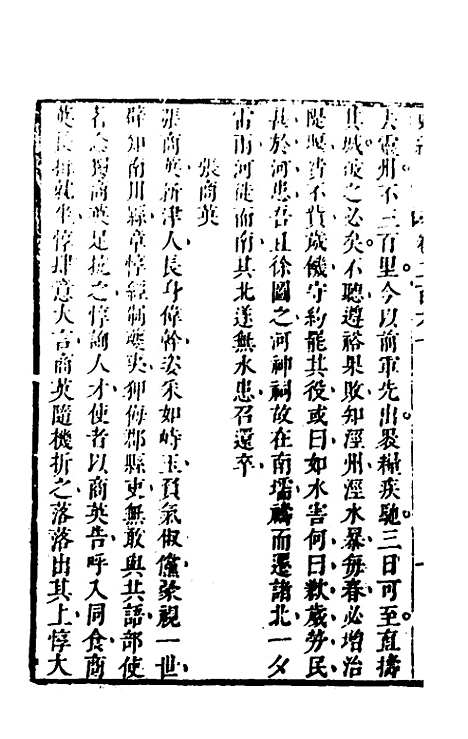 去靈州不三百里今以前軍先出裹糧疾馳三日可至直擣
其城破之必矣不聽遵裕果敗知涇州涇水暴每春必增治
隄堰費不貲歲饑守約罷其役或曰如水害何曰歉歲勞民
甚於河患吾且徐圖之河神祠故在南壖禱而遷諸北一夕
雷雨河徙而南其北遂無水患召還卒
張商英
張商英新津人長身偉幹姿采如峙玉負氣俶儻豪視一世
辟知南川縣章惇經制夔夷狎侮郡縣吏無敢與共語部使
者念獨商英足抗之惇詢人才使者以商英告呼入同食商
英長揖就坐惇肆意大言商英隨機折之落落出其上惇大